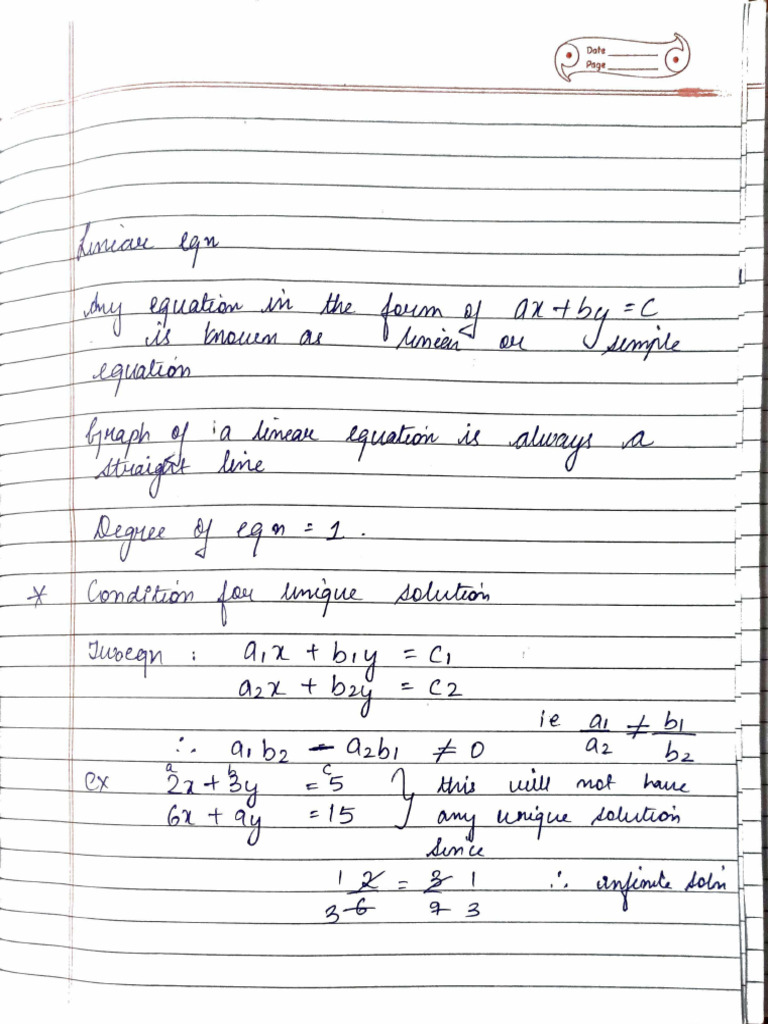 Date
Page
Linear eqn
Any equation in the form of ax + by = C
is known as linear or simple
equation
Graph of a linear equation is always a
straight line
Degree of eqn = 1.
* Condition for unique solution
Two eqn : a₁x + b₁y = C₁
a₂x + b₂y = C2
ie a₁/a₂ ≠ b₁/b₂
∴ a₁b₂ - a₂b₁ ≠ 0
a b c
ex 2x + 3y = 5 } this will not have
6x + 9y = 15 any unique solution
since
1 2/6 3 = 3/9 1 3 ∴ infinite soln